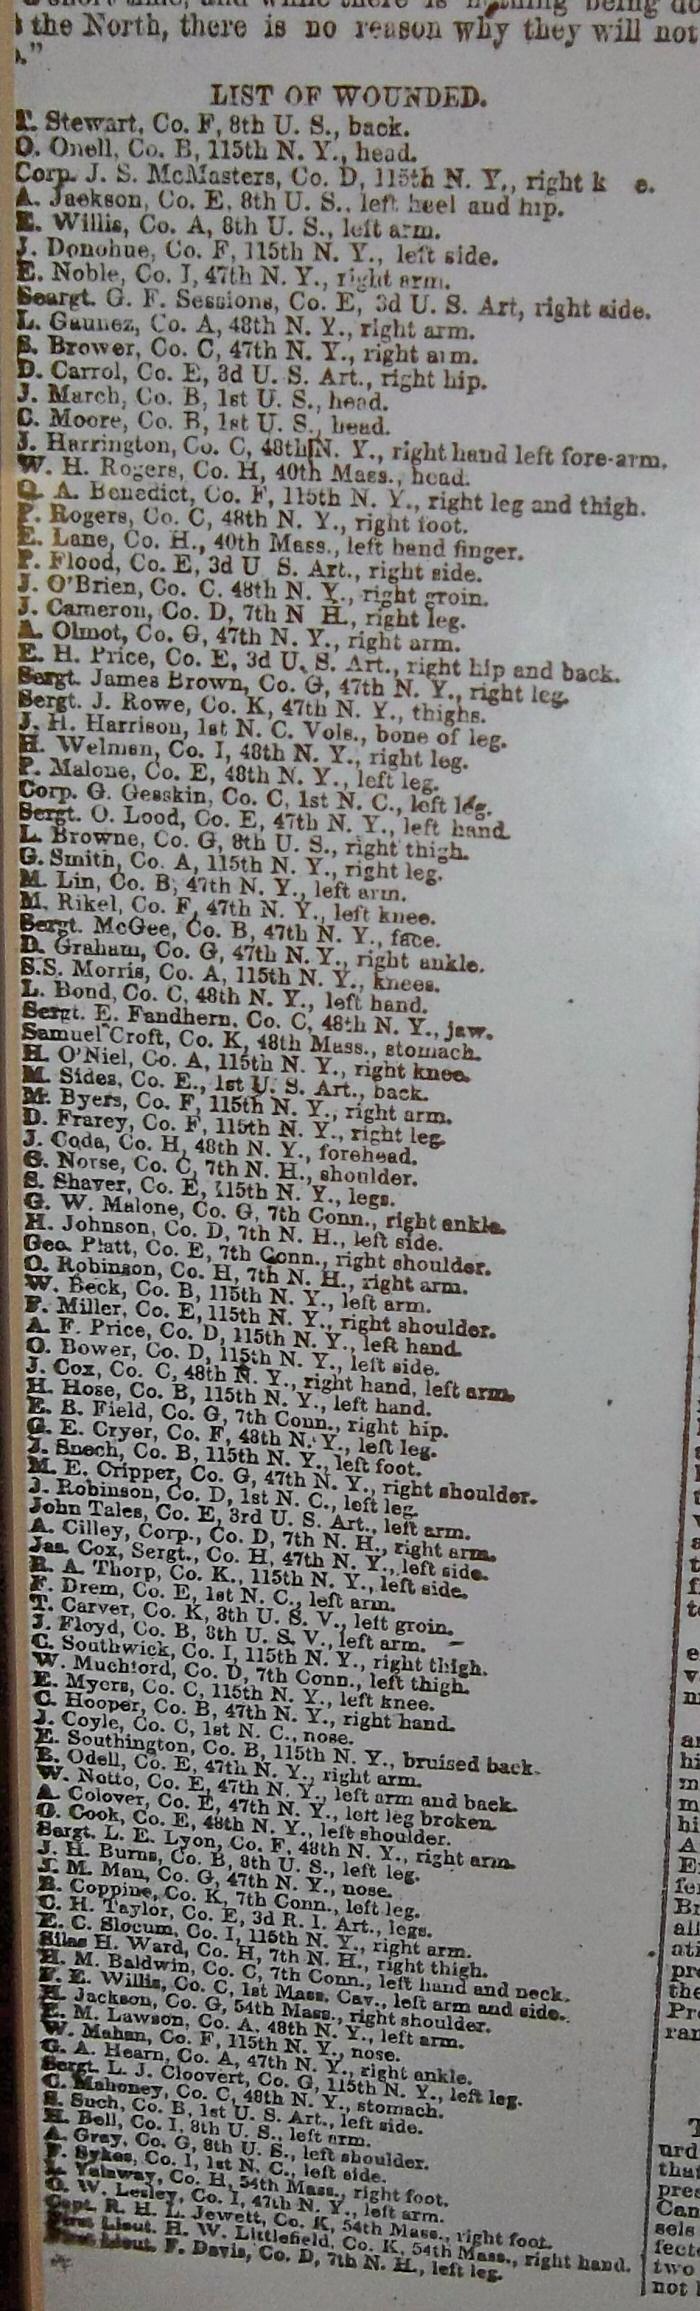 the North, there is no reason why they will not
LIST OF WOUNDED.
T. Stewart, Co. F, 8th U. S., back.
O. Onell, Co. B, 115th N. Y., head.
Corp. J. S. McMasters, Co. D, 115th N. Y., right k e.
A. Jackson, Co. E, 8th U. S., left heel and hip.
E. Willis, Co. A, 8th U. S., left arm.
J. Donohue, Co. F, 115th N. Y., left side.
E. Noble, Co. I, 47th N. Y., right arm.
Seargt. G. F. Sessions, Co. E, 3d U. S. Art, right side.
L. Gaunez, Co. A, 48th N. Y., right arm.
S. Brower, Co. C, 47th N. Y., right arm.
D. Carrol, Co. E, 3d U. S. Art., right hip.
J. March, Co. B, 1st U. S., head.
C. Moore, Co. B, 1st U. S., head.
J. Harrington, Co. C, 48th N. Y., right hand left fore-arm.
W. H. Rogers, Co. H, 40th Mass., head.
O. A. Benedict, Co. F, 115th N. Y., right leg and thigh.
P. Rogers, Co. C, 48th N. Y., right foot.
E. Lane, Co. H., 40th Mass., left hand finger.
P. Flood, Co. E, 3d U S. Art., right side.
J. O'Brien, Co. C. 48th N. Y., right groin.
J. Cameron, Co. D, 7th N H., right leg.
A. Olmot, Co. G, 47th N. Y., right arm.
E. H. Price, Co. E, 3d U. S. Art., right hip and back.
Sergt. James Brown, Co. G, 47th N. Y., right leg.
Sergt. J. Rowe, Co. K, 47th N. Y., thighs.
J. H. Harrison, 1st N. C. Vols., bone of leg.
H. Welmen, Co. I, 48th N. Y., right leg.
P. Malone, Co. E, 48th N. Y., left leg.
Corp. G. Gesskin, Co. C, 1st N. C., left leg.
Sergt. O. Lood, Co. E, 47th N. Y., left hand.
L. Browne, Co. G, 8th U. S., right thigh.
G. Smith, Co. A, 115th N. Y., right leg.
M. Lin, Co. B, 47th N. Y., left arm.
M. Rikel, Co. F, 47th N. Y., left knee.
Sergt. McGee, Co. B, 47th N. Y., face.
D. Graham, Co. G, 47th N. Y., right ankle.
S.S. Morris, Co. A, 115th N. Y., knees.
L. Bond, Co. C, 48th N. Y., left hand.
Sergt. E. Fandhern, Co. C, 48th N. Y., jaw.
Samuel Croft, Co. K, 48th Mass., stomach.
H. O'Niel, Co. A, 115th N. Y., right knee.
M. Sides, Co. E., 1st U. S. Art., back.
M. Byers, Co. F, 115th N. Y., right arm.
D. Frarey, Co. F, 115th N. Y., right leg.
J. Coda, Co. H, 48th N. Y., forehead.
G. Norse, Co. C, 7th N. H., shoulder.
S. Shaver, Co. E, 115th N. Y., legs.
G. W. Malone, Co. G, 7th Conn., right ankle.
H. Johnson, Co. D, 7th N. H., left side.
Geo. Platt, Co. E, 7th Conn., right shoulder.
O. Robinson, Co. H, 7th N. H., right arm.
W. Beck, Co. B, 115th N. Y., left arm.
F. Miller, Co. E, 115th N. Y., right shoulder.
A. F. Price, Co. D, 115th N. Y., left hand.
O. Bower, Co. D, 115th N. Y., left side.
J. Cox, Co. C, 48th N. Y., right hand, left arm.
H. Hose, Co. B, 115th N. Y., left hand.
E. B. Field, Co. G, 7th Conn., right hip.
G. E. Cryer, Co. F, 48th N. Y., left leg.
J. Snech, Co. B, 115th N. Y., left foot.
M. E. Cripper, Co. G, 47th N. Y., right shoulder.
J. Robinson, Co. D, 1st N. C., left leg.
John Tales, Co. E, 3rd U. S. Art., left arm.
A. Cilley, Corp., Co. D, 7th N. H., right arm.
Jas. Cox, Sergt., Co. H, 47th N. Y., left side.
R. A. Thorp, Co. K., 115th N. Y., left side.
F. Drem, Co. E, 1st N. C., left arm.
T. Carver, Co. K, 8th U. S. V., left groin.
J. Floyd, Co. B, 8th U. S. V., left arm.
C. Southwick, Co. I, 115th N. Y., right thigh.
W. Muchford, Co. D, 7th Conn., left thigh.
E. Myers, Co. C, 115th N. Y., left knee.
C. Hooper, Co. B, 47th N. Y., right hand.
J. Coyle, Co. C, 1st N. C., nose.
E. Southington, Co. B, 115th N. Y., bruised back.
B. Odell, Co. E, 47th N. Y., right arm.
W. Notto, Co. E, 47th N. Y., left arm and back.
A. Colover, Co. E, 47th N. Y., left leg broken.
O. Cook, Co. E, 48th N. Y., left shoulder.
Sergt. L. E. Lyon, Co. F, 48th N. Y., right arm.
J. H. Burns, Co. B, 8th U. S., left leg.
J. M. Man, Co. G, 47th N. Y., nose.
B. Coppine, Co. K, 7th Conn., left leg.
C. H. Taylor, Co. E, 3d R. I. Art., legs.
E. C. Slocum, Co. I, 115th N. Y., right arm.
Silas H. Ward, Co. H, 7th N. H., right thigh.
H. M. Baldwin, Co. C, 7th Conn., left hand and neck.
F. E. Willis, Co. C, 1st Mass. Cav., left arm and side.
H. Jackson, Co. G, 54th Mass., right shoulder.
E. M. Lawson, Co. A, 48th N. Y., left arm.
W. Mahan, Co. F, 115th N. Y., nose.
G. A. Hearn, Co. A, 47th N. Y., right ankle.
Sergt. L. J. Cloovert, Co. G, 115th N. Y., left leg.
C. Mahoney, Co. C, 48th N. Y., stomach.
S. Such, Co. B, 1st U. S. Art., left side.
H. Bell, Co. I, 8th U. S., left arm.
A. Gray, Co. G, 8th U. S., left shoulder.
F. Sykes, Co. I, 1st N. C., left side.
Yalaway, Co. H, 54th Mass., right foot.
G. W. Lesley, Co. I, 47th N. Y., left arm.
Capt. R. H. L. Jewett, Co. K, 54th Mass., right foot.
First Lieut. H. W. Littlefield, Co. K, 54th Mass., right hand.
First Lieut. F. Davis, Co. D, 7th N. H., left leg.